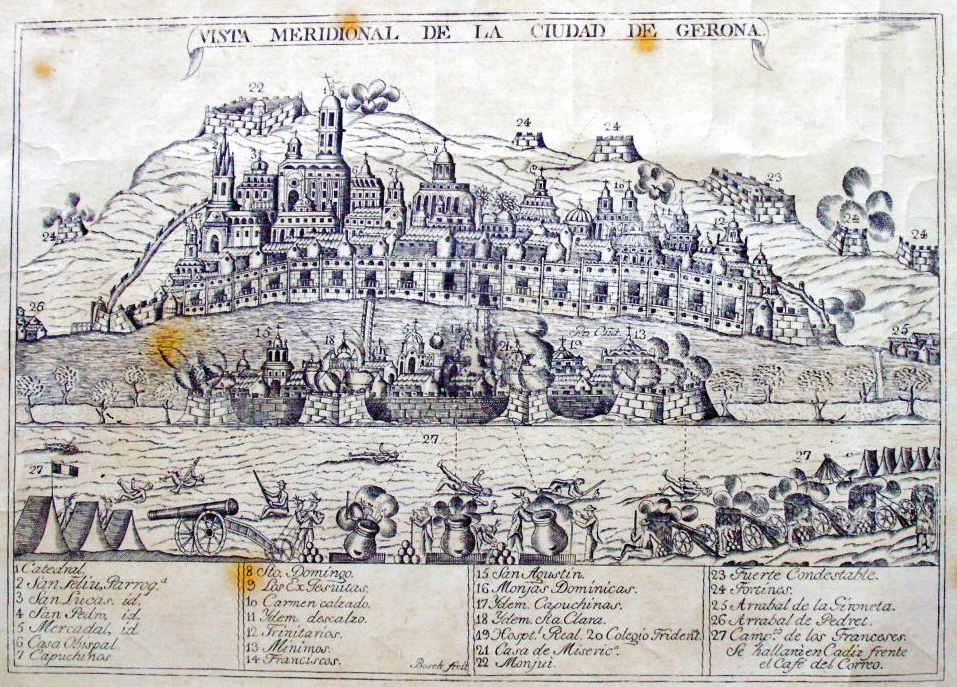 VISTA MERIDIONAL DE LA CIUDAD DE GERONA.
22
24
24
23
24
24
24
26
25
27
27
27
1 Catedral.
2 San Feliu, Parrog.ª
3 San Lucas, id.
4 San Pedro, id.
5 Mercadal, id
6 Casa Obispal
7 Capuchinos
8 Sto. Domingo.
9 Los ExJesuitas.
10 Carmen calzado.
11 Ydem descalzo.
12 Trinitarios.
13 Minimos.
14 Franciscos.
Bosch fecit
15 San Agustin.
16 Monjas Dominicas.
17 Ydem Capuchinas.
18 Ydem Sta. Clara.
19 Hospt.l Real. 20 Colegio Trident.
21 Casa de Miseric.ª
22 Monjui.
23 Fuerte Condestable.
24 Fortines.
25 Arrabal de la Gironeta.
26 Arrabal de Pedret.
27 Camp.to de los Franceses.
Se hallará en Cadiz frente
el Café del Correo.